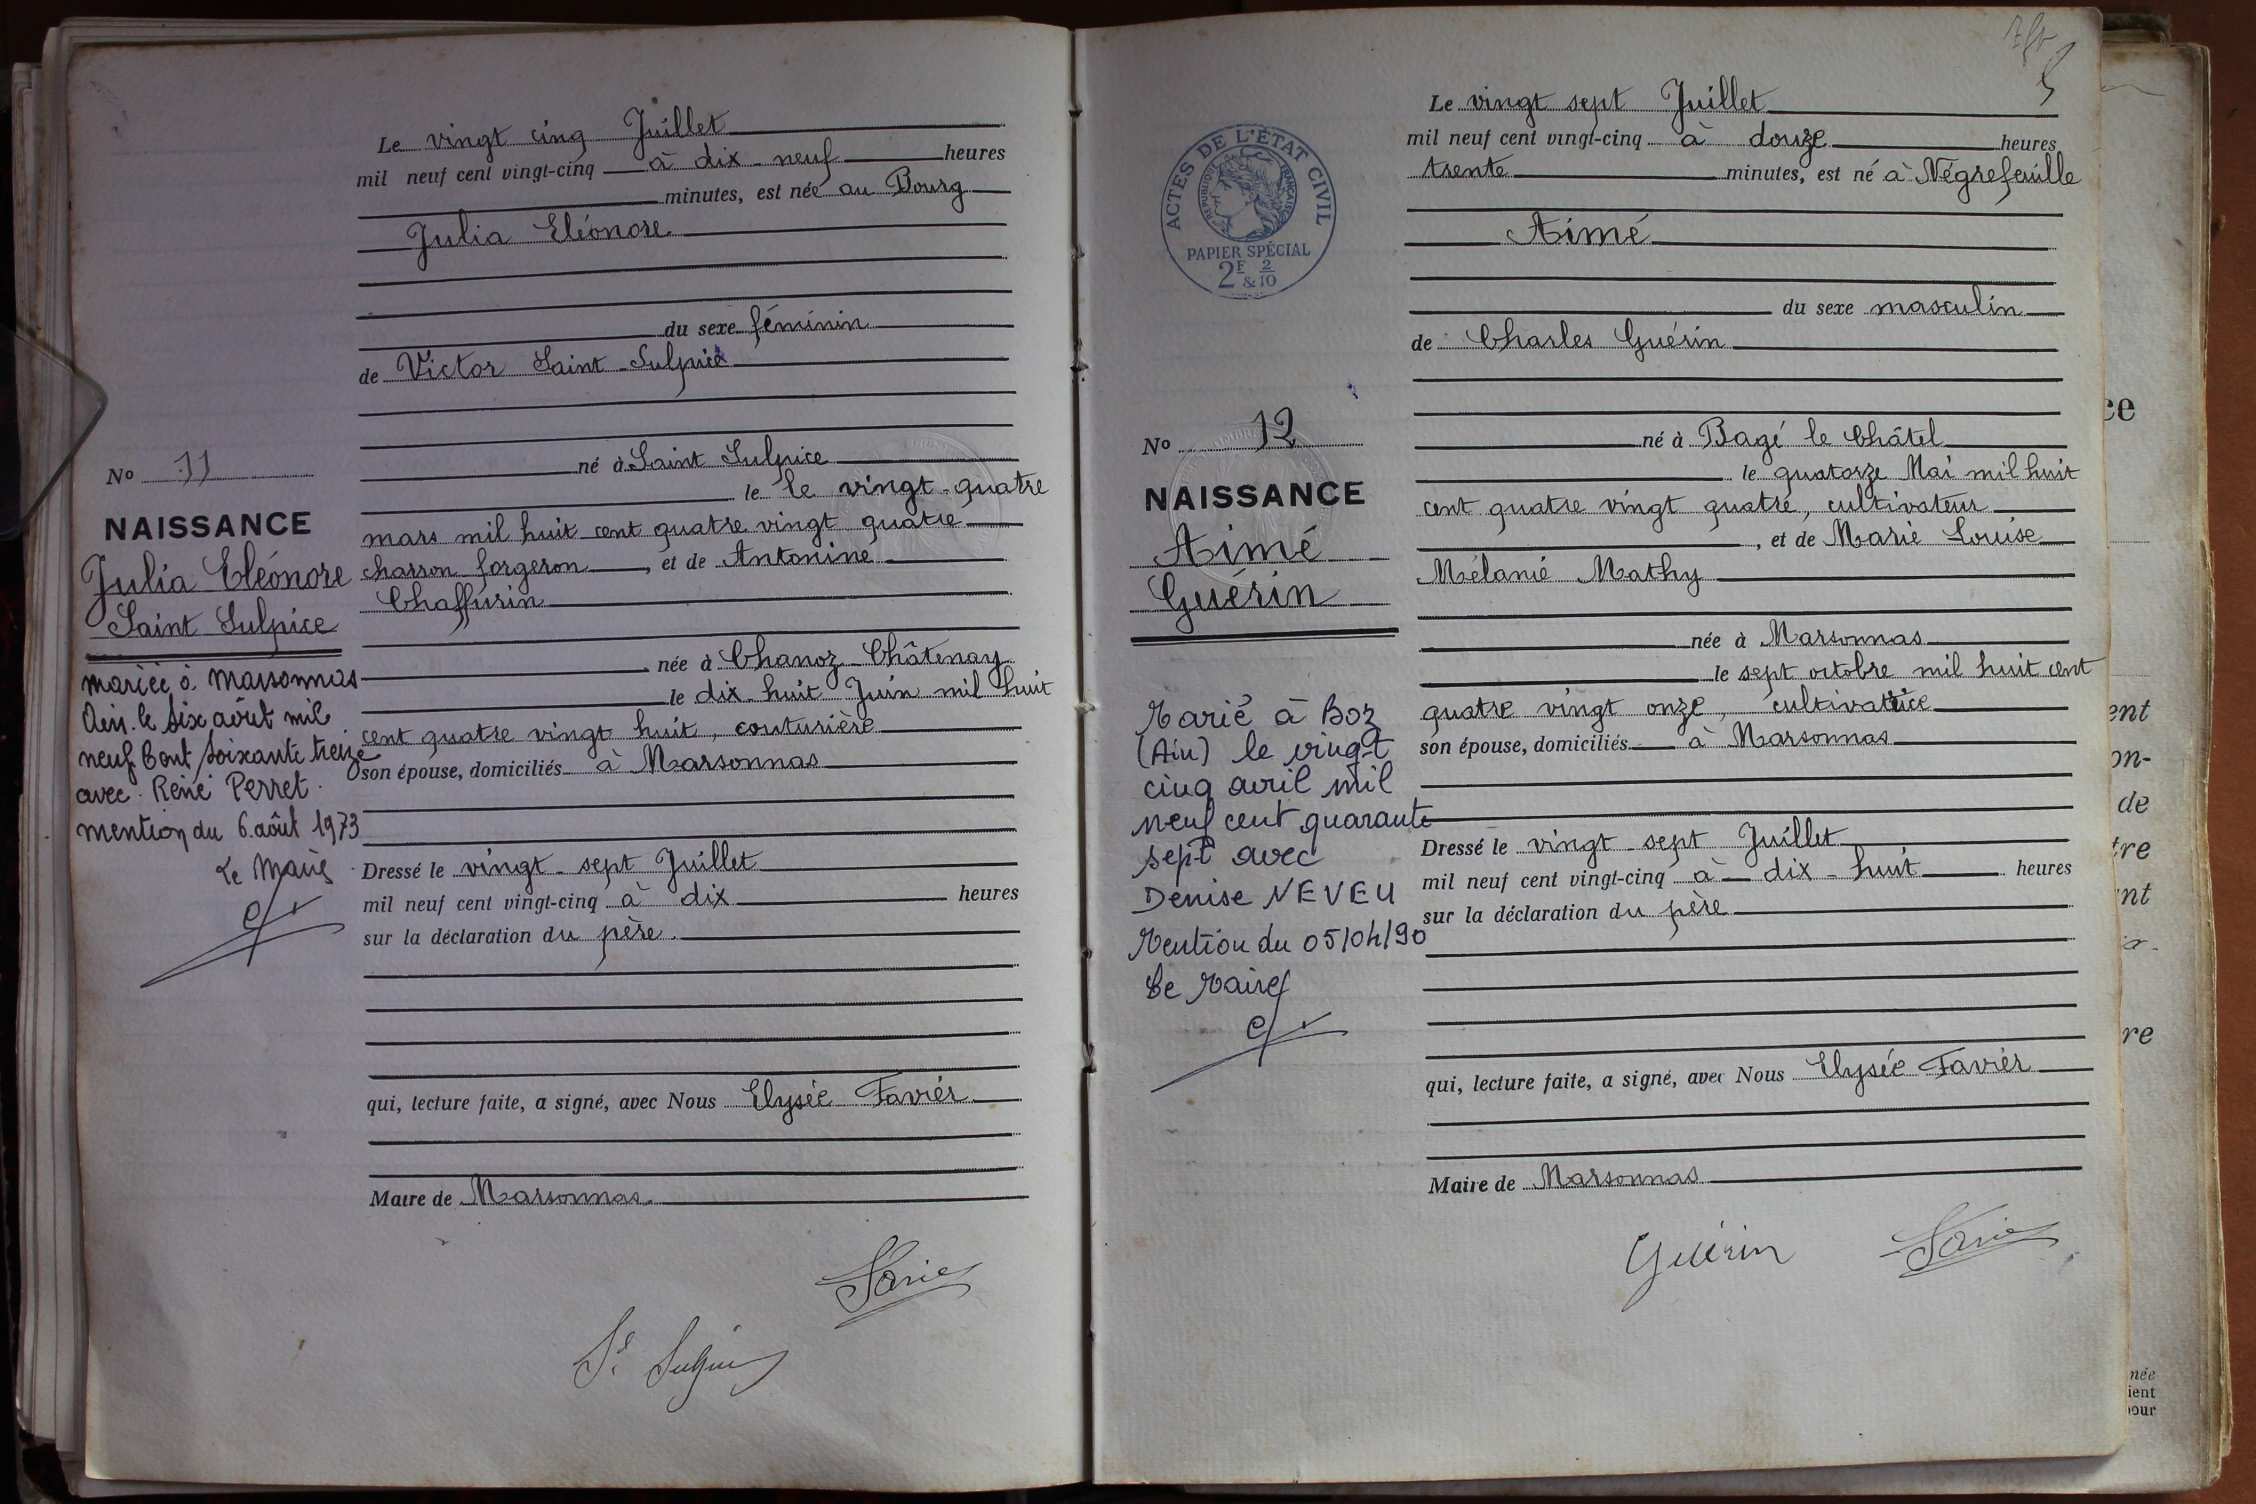 Le vingt cinq Juillet
mil neuf cent vingt-cinq à dix-neuf heures
minutes, est née au Bourg
Julia Eléonore
du sexe féminin
de Victor Saint-Sulpice
né à Saint Sulpice
le le vingt-quatre
mars mil huit cent quatre vingt quatre
charron forgeron, et de Antonine
Chaffurin
née à Chanoz-Châtenay
le dix-huit Juin mil huit
cent quatre vingt huit, couturière
son épouse, domiciliés à Marsonnas
Dressé le vingt-sept Juillet
mil neuf cent vingt-cinq à dix heures
sur la déclaration du père.
qui, lecture faite, a signé, avec Nous Elysée Favier
Maire de Marsonnas.
No 11
NAISSANCE
Julia Eléonore
Saint Sulpice
mariée à Marsonnas
Ain. le six août mil
neuf Cent soixante treize
avec René Perret.
mention du 6 août 1973
Le Maire
St Sulpice
ACTES DE L'ÉTAT CIVIL
RÉPUBLIQUE FRANÇAISE
PAPIER SPÉCIAL
2F & 2/10
Le vingt sept Juillet
mil neuf cent vingt-cinq à douze heures
trente minutes, est né à Négrefeuille
Aimé
du sexe masculin
de Charles Guérin
né à Bagé le Châtel
le quatorze Mai mil huit
cent quatre vingt quatre, cultivateur
, et de Marie Louise
Mélanie Mathy
née à Marsonnas
le sept octobre mil huit cent
quatre vingt onze, cultivatrice
son épouse, domiciliés à Marsonnas
Dressé le vingt-sept Juillet
mil neuf cent vingt-cinq à dix-huit heures
sur la déclaration du père
qui, lecture faite, a signé, avec Nous Elysée Favier
Maire de Marsonnas
No 12
NAISSANCE
Aimé
Guérin
Marié à Boz
(Ain) le vingt
cinq avril mil
neuf cent quarante
sept avec
Denise NEVEU
Mention du 05/04/90
Le Maire
Guérin
ce
ent
on-
de
tre
nt
re
née
ient
our